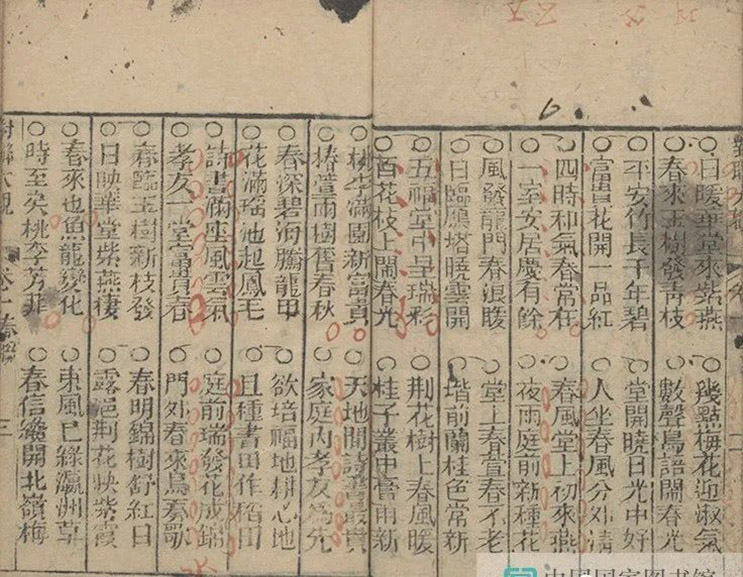 ○日暖華堂來紫燕 ○幾點梅花迎淑氣
○春來玉樹發靑枝 ○數聲鳥語鬧春光
○平安竹長千年碧 ○堂開曉日光中好
○富貴花開一品紅 ○人坐春風分外清
○四時和氣春常在 ○春風堂上初來燕
○一室安居慶有餘 ○夜雨庭前新種花
○風發龍門春浪暖 ○堂上春萱春不老
○日臨鴈塔曉雲開 ○堦前蘭桂色常新
○五福堂中呈瑞彩 ○荆花樹上春風暖
○百花枝上鬧春光 ○桂子叢中膏雨新
○桃李滿園新富貴 ○天地間詩書最貴
○椿萱兩樹舊春秋 ○家庭內孝友爲先
○春深碧海騰龍甲 ○欲培福地耕心地
○花滿瑤池起鳳毛 ○且種書田作稻田
○詩書滿座風雲氣 ○庭前瑞發花成錦
○孝友一堂富貴春 ○門外春來鳥奏歌
○春臨玉樹新枝發 ○春明錦樹舒紅日
○日映華堂紫燕棲 ○露浥荆花映紫霞
○春來也魚龍變化 ○東風已綠瀛洲草
○時至矣桃李芳菲 ○春信纔開北嶺梅
對聯大觀 卷一 三
中国国家图书馆